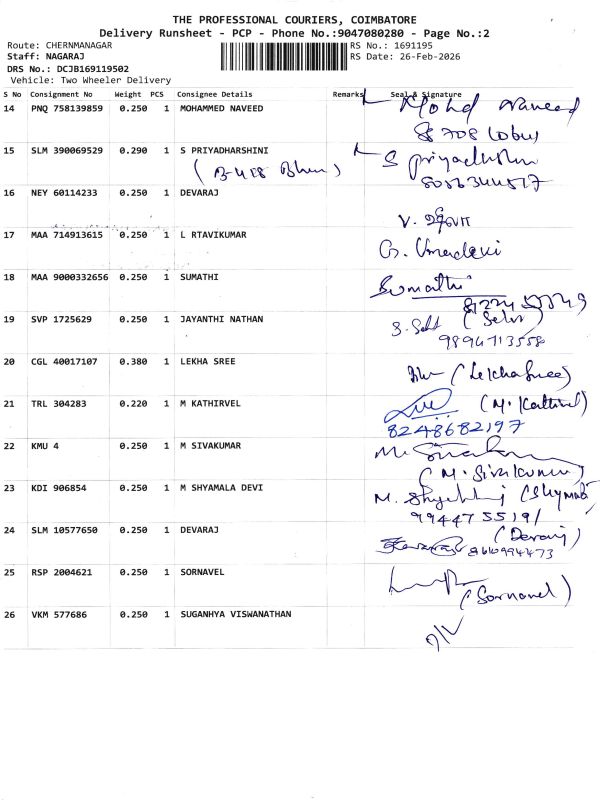 THE PROFESSIONAL COURIERS, COIMBATORE
Delivery Runsheet - PCP - Phone No.:9047080280 - Page No.:2
Route: CHERNMANAGAR
RS No.: 1691195
Staff: NAGARAJ
RS Date: 26-Feb-2026
DRS No.: DCJB169119502
Vehicle: Two Wheeler Delivery
S No Consignment No Weight PCS Consignee Details Remarks Seal & Signature
14 PNQ 758139859 0.250 1 MOHAMMED NAVEED Mohd Naveed
15 SLM 390069529 0.290 1 S PRIYADHARSHINI S Priyadharshini
16 NEY 60114233 0.250 1 DEVARAJ
17 MAA 714913615 0.250 1 L RTAVIKUMAR G. Umadevi
18 MAA 9000332656 0.250 1 SUMATHI Sumathi
19 SVP 1725629 0.250 1 JAYANTHI NATHAN (Selvi)
9894713558
20 CGL 40017107 0.380 1 LEKHA SREE (Lekhasree)
21 TRL 304283 0.220 1 M KATHIRVEL (M. Kathirvel)
8248682197
22 KMU 4 0.250 1 M SIVAKUMAR
(M. Sivakumar)
23 KDI 906854 0.250 1 M SHYAMALA DEVI
9944755191
24 SLM 10577650 0.250 1 DEVARAJ (Devaraj)
25 RSP 2004621 0.250 1 SORNAVEL
(Sornavel)
26 VKM 577686 0.250 1 SUGANHYA VISWANATHAN